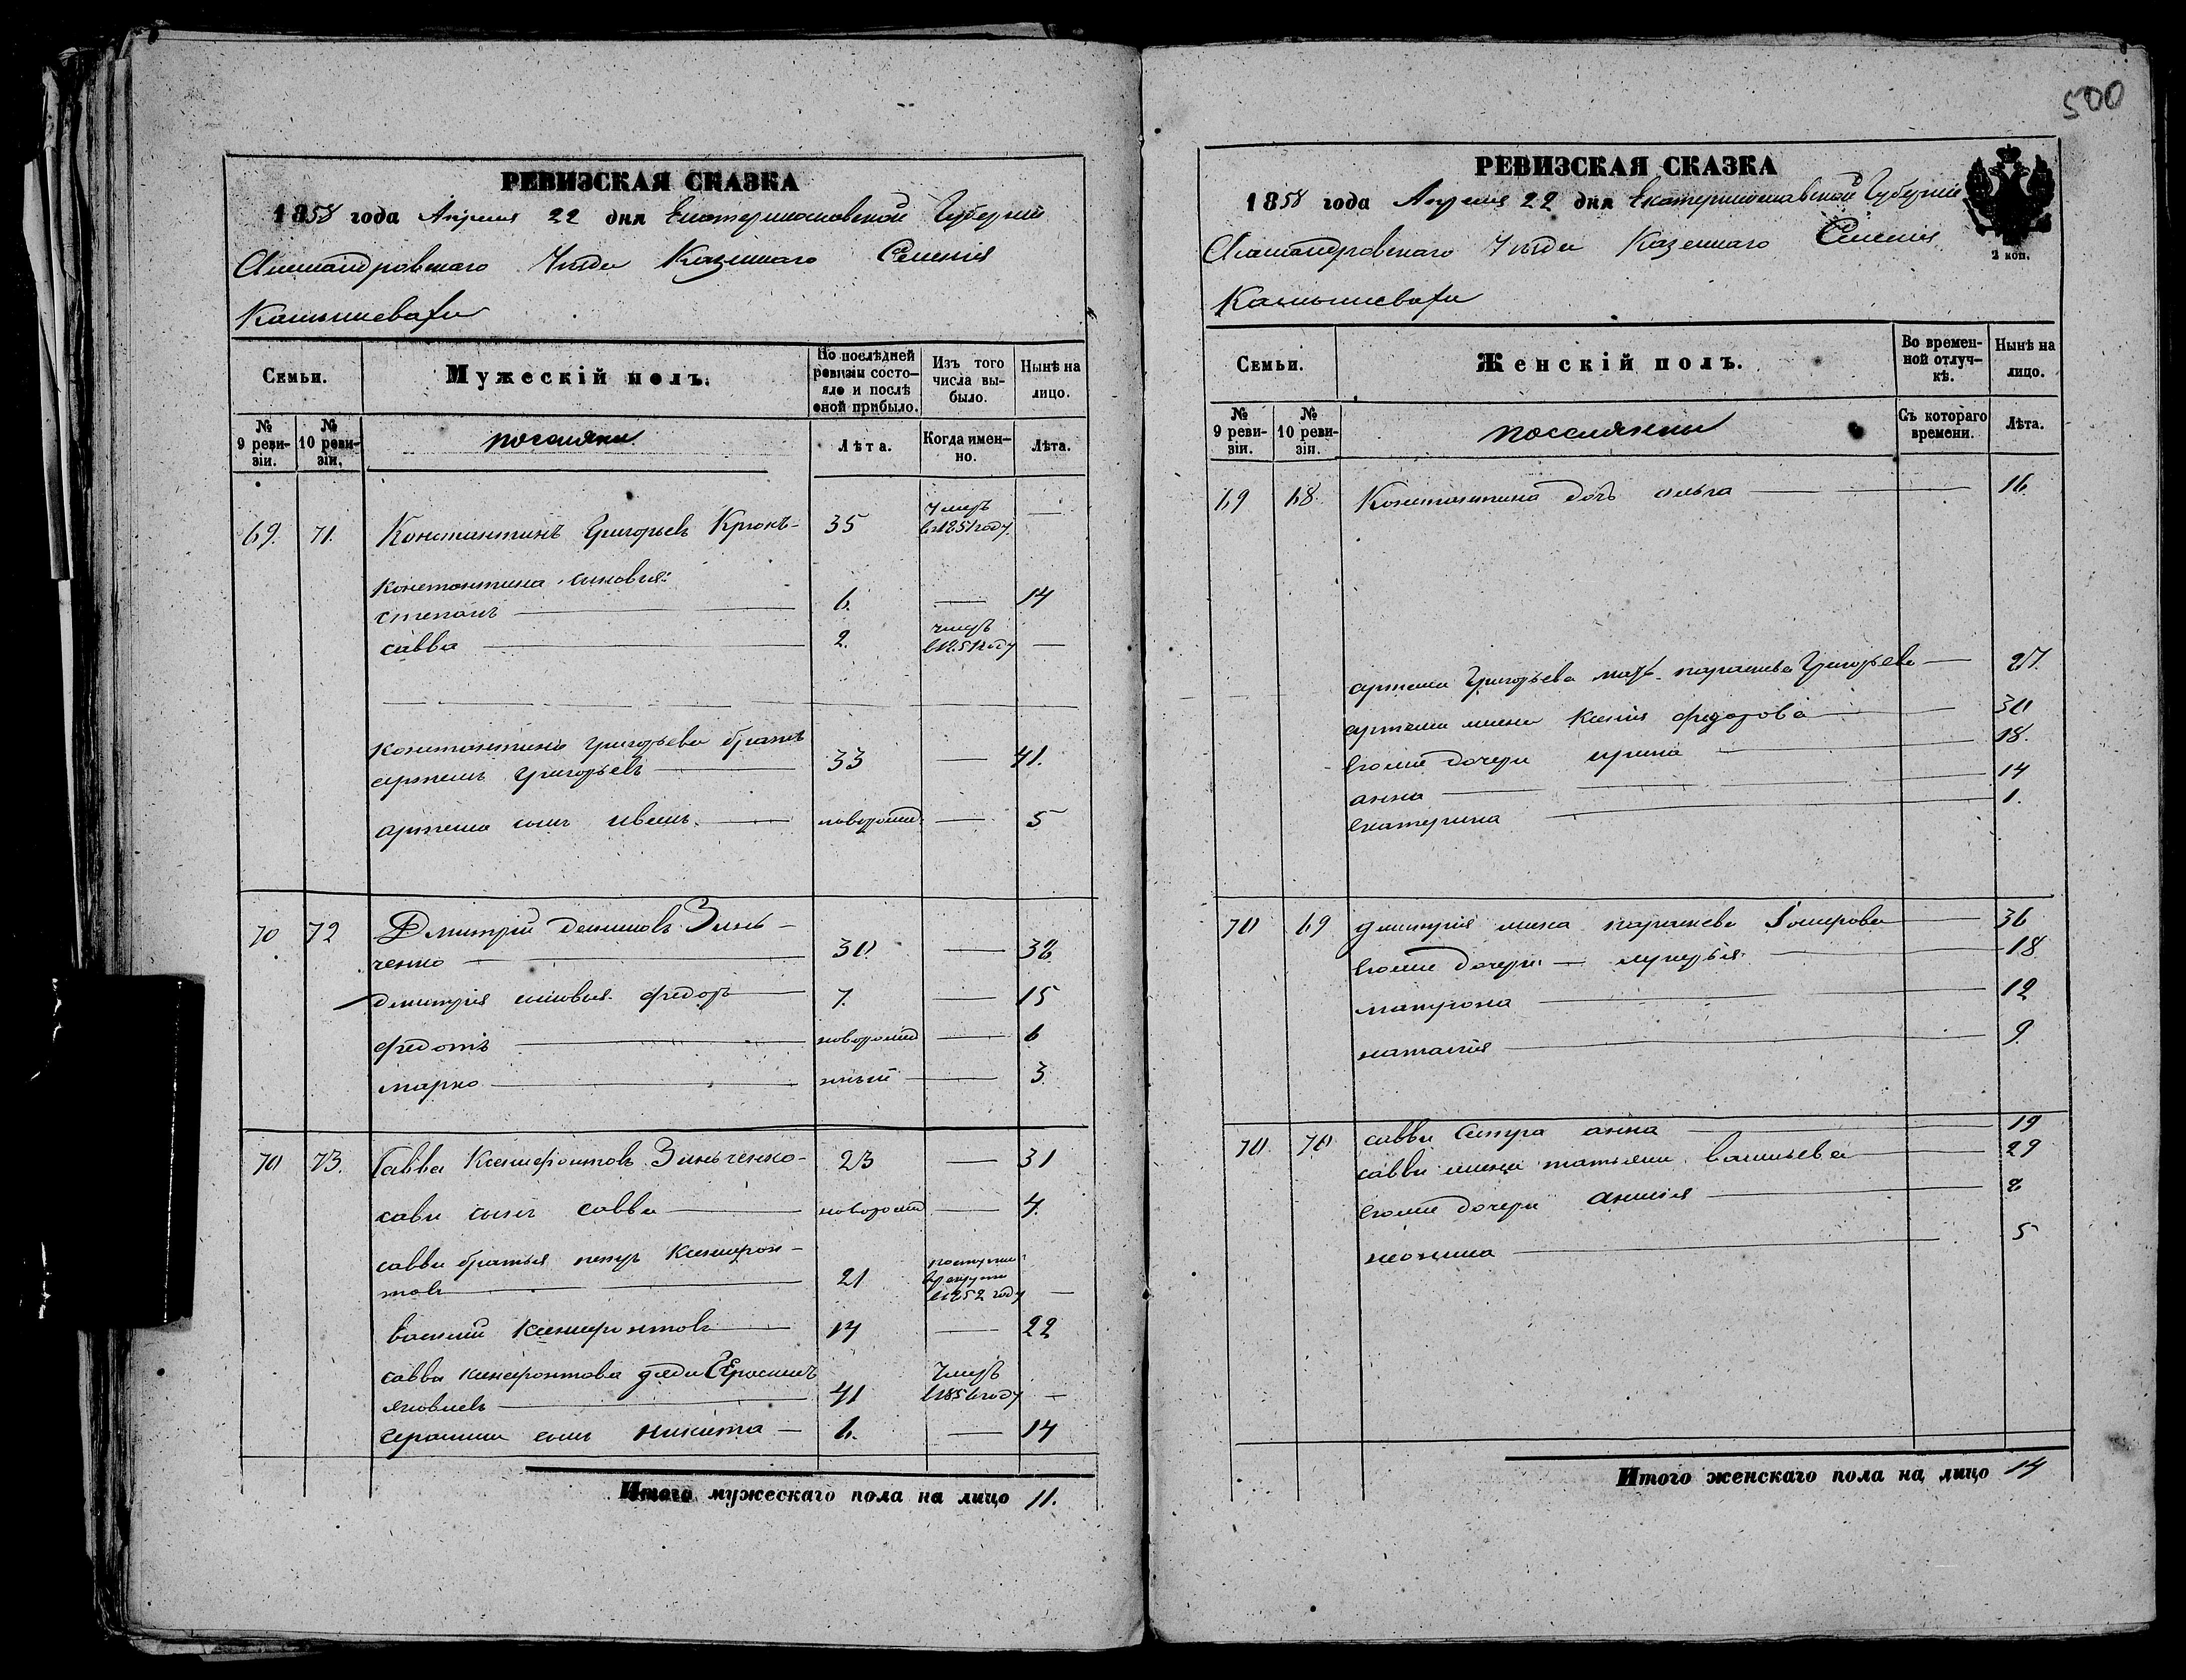 500
РЕВИЗСКАЯ СКАЗКА
1858 года Апреля 22 дня Екатеринославской Губернии
Александровскаго Уезда Казеннаго Селения
Камышевахи
Семьи.
Мужескій полъ.
По послѣдней ревизіи состояло и послѣ оной прибыло.
Изъ того числа выбыло.
Нынѣ на лицо.
№ 9 ревизіи.
№ 10 ревизіи.
поселяне
Лѣта.
Когда именно.
Лѣта.
69. 71. Константинъ Григорьевъ Крюкъ 35 умеръ в 1851 году —
Константина сыновья:
степанъ 6. — 14
савва 2. умеръ в 1851 году —
константина григорьева братъ
артемъ григорьевъ 33 — 41.
артема сынъ иванъ новорожд — 5
70 72 Дмитрий Денисовъ Зинь-
ченко 30. — 38
дмитрия сыновья федоръ 7. — 15
федотъ новорожд — 6
марко ный — 3
70 73. Савва Ксенофонтовъ Зинченко 23 — 31
савы сынъ савва новорожд — 4.
саввы братья петръ Ксенофон-
товъ 21 поступил в рекруты в 1852 году —
василий ксенофонтовъ 14 — 22
саввы ксенофонтова дядя Ерасимъ
яковлевъ 41 умеръ в 1856 году —
герасима сынъ никита 6. — 14
Итого мужескаго пола на лицо 11.
РЕВИЗСКАЯ СКАЗКА
1858 года Апреля 22 дня Екатеринославской Губернии
Александровскаго Уезда Казеннаго Селения
2 коп.
Камышевахи
Семьи.
Женскій полъ.
Во временной отлучкѣ.
Нынѣ на лицо.
№ 9 ревизіи.
№ 10 ревизіи.
поселянки
Съ котораго времени.
Лѣта.
69 68. Константина дочь ольга 16
артема Григорьева параскева Григорьева 27.
артема жена Ксения федорова 30
егоже дочери ирина 18.
анна 14
екатерина 1.
70 69 дмитрия жена параскева 36
егоже дочери лукерья 18
матрона 12
наталия 9.
70. 70 саввы сестра анна 19
саввы жена татьяна васильева 29
егоже дочери 8
5
Итого женскаго пола на лицо 14